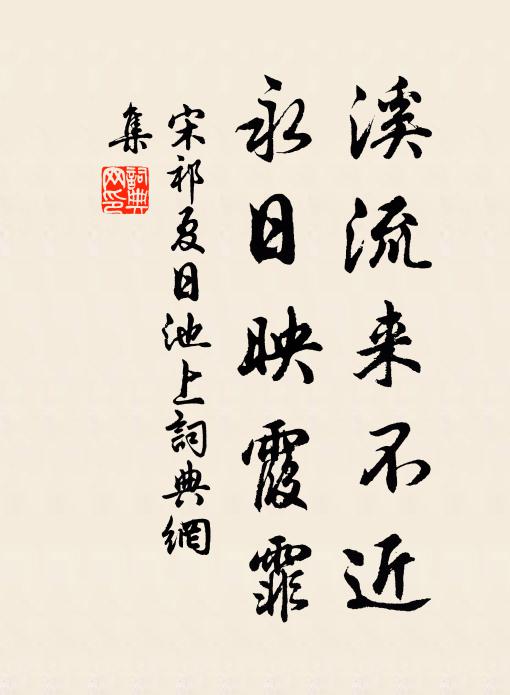 溪流来不近
永日映霞霏
宋祁夏日池上詞典網
集
詞典網印